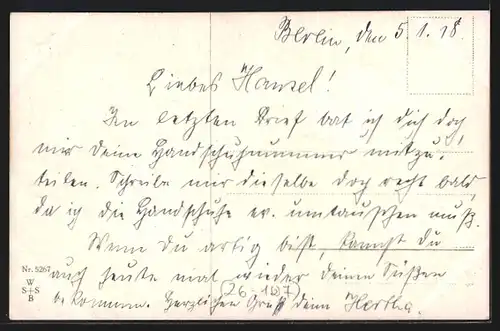 Berlin, den 5.1.18.
Liebes Hansel!
Im letzten Brief bat ich dich doch,
mir deine Handschuhnummer mitzu-
teilen. Schreibe mir dieselbe doch recht bald,
da ich die Handschuhe ev. umtauschen muß.
Wenn du artig bist, kannst du
auch heute mal wieder deinen Süßen
bekommen. Herzlichen Gruß deine Hertha.
Nr. 5267
W
S+S
B
(26-167)